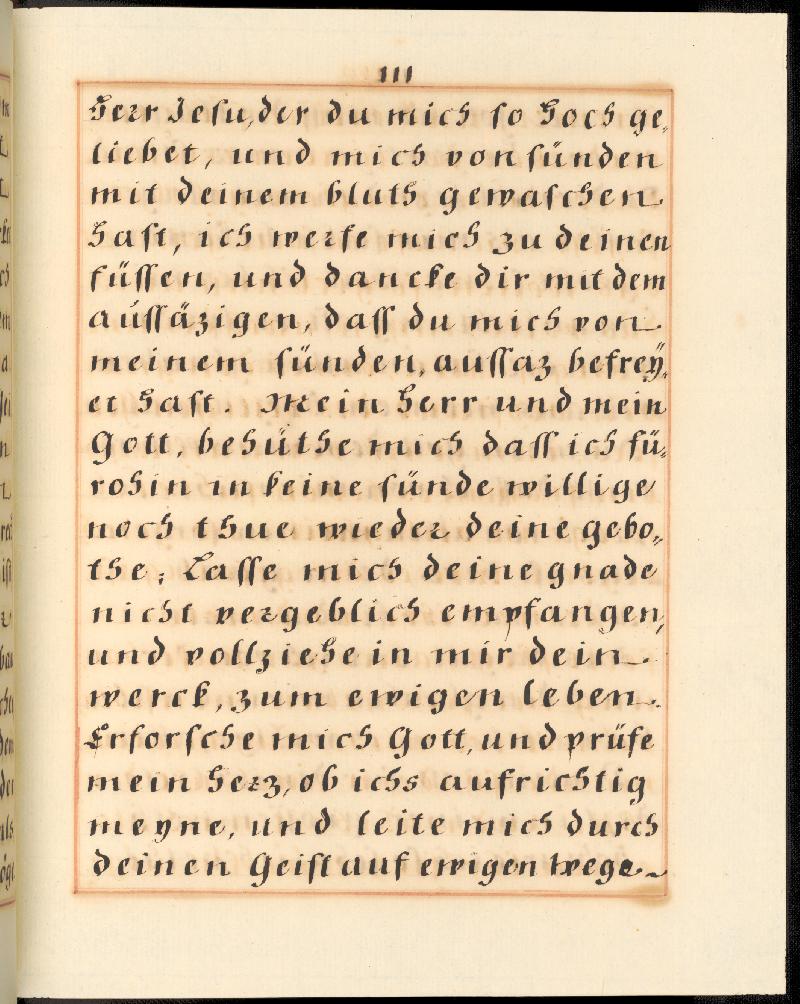 111
Herr Jesu, der du mich so hoch ge„
liebet, und mich von sünden
mit deinem bluth gewaschen
hast, ich werfe mich zu deinen
füssen, und dancke dir mit dem
aussäzigen, dass du mich von
meinem sünden„aussaz befrey„
et hast. Mein Herr und mein
Gott, behüthe mich dass ich fü„
rohin in keine sünde willige
noch thue wieder deine gebo„
the; Lasse mich deine gnade
nicht vergeblich empfangen,
und vollziehe in mir dein
werck, zum ewigen leben.
Erforsche mich Gott, und prüfe
mein herz, ob ichs aufrichtig
meyne, und leite mich durch
deinen Geist auf ewigen Wege.